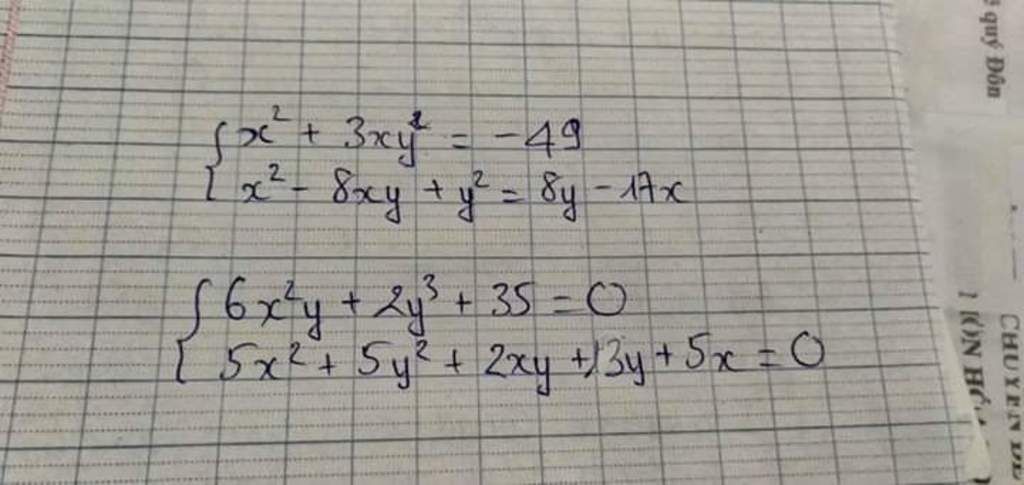 { x² + 3xy² = -49
x² - 8xy + y² = 8y - 17x
{ 6x²y + 2y³ + 35 = 0
5x² + 5y² + 2xy + 13y + 5x = 0
quý Đôn
CHUYÊN ĐỀ